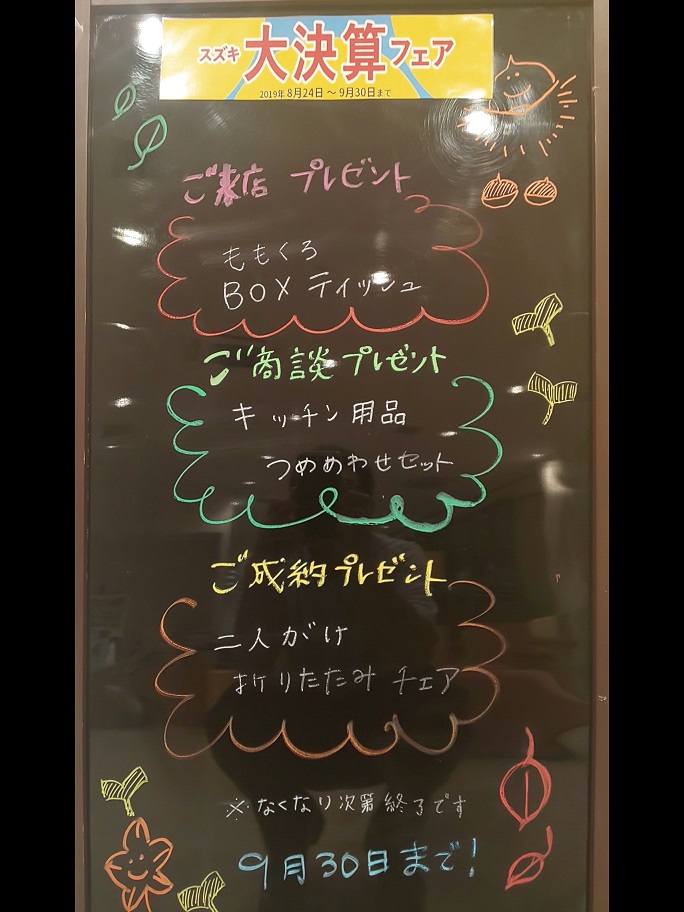 スズキ 大決算フェア
2019年 8月24日 ～ 9月30日まで
ご来店 プレゼント
ももくろ
BOX ティッシュ
ご商談 プレゼント
キッチン用品
つめめわせセット
ご成約プレゼント
二人がけ
折りたたみ チェア
※なくなり次第終了です
9月30日まで!